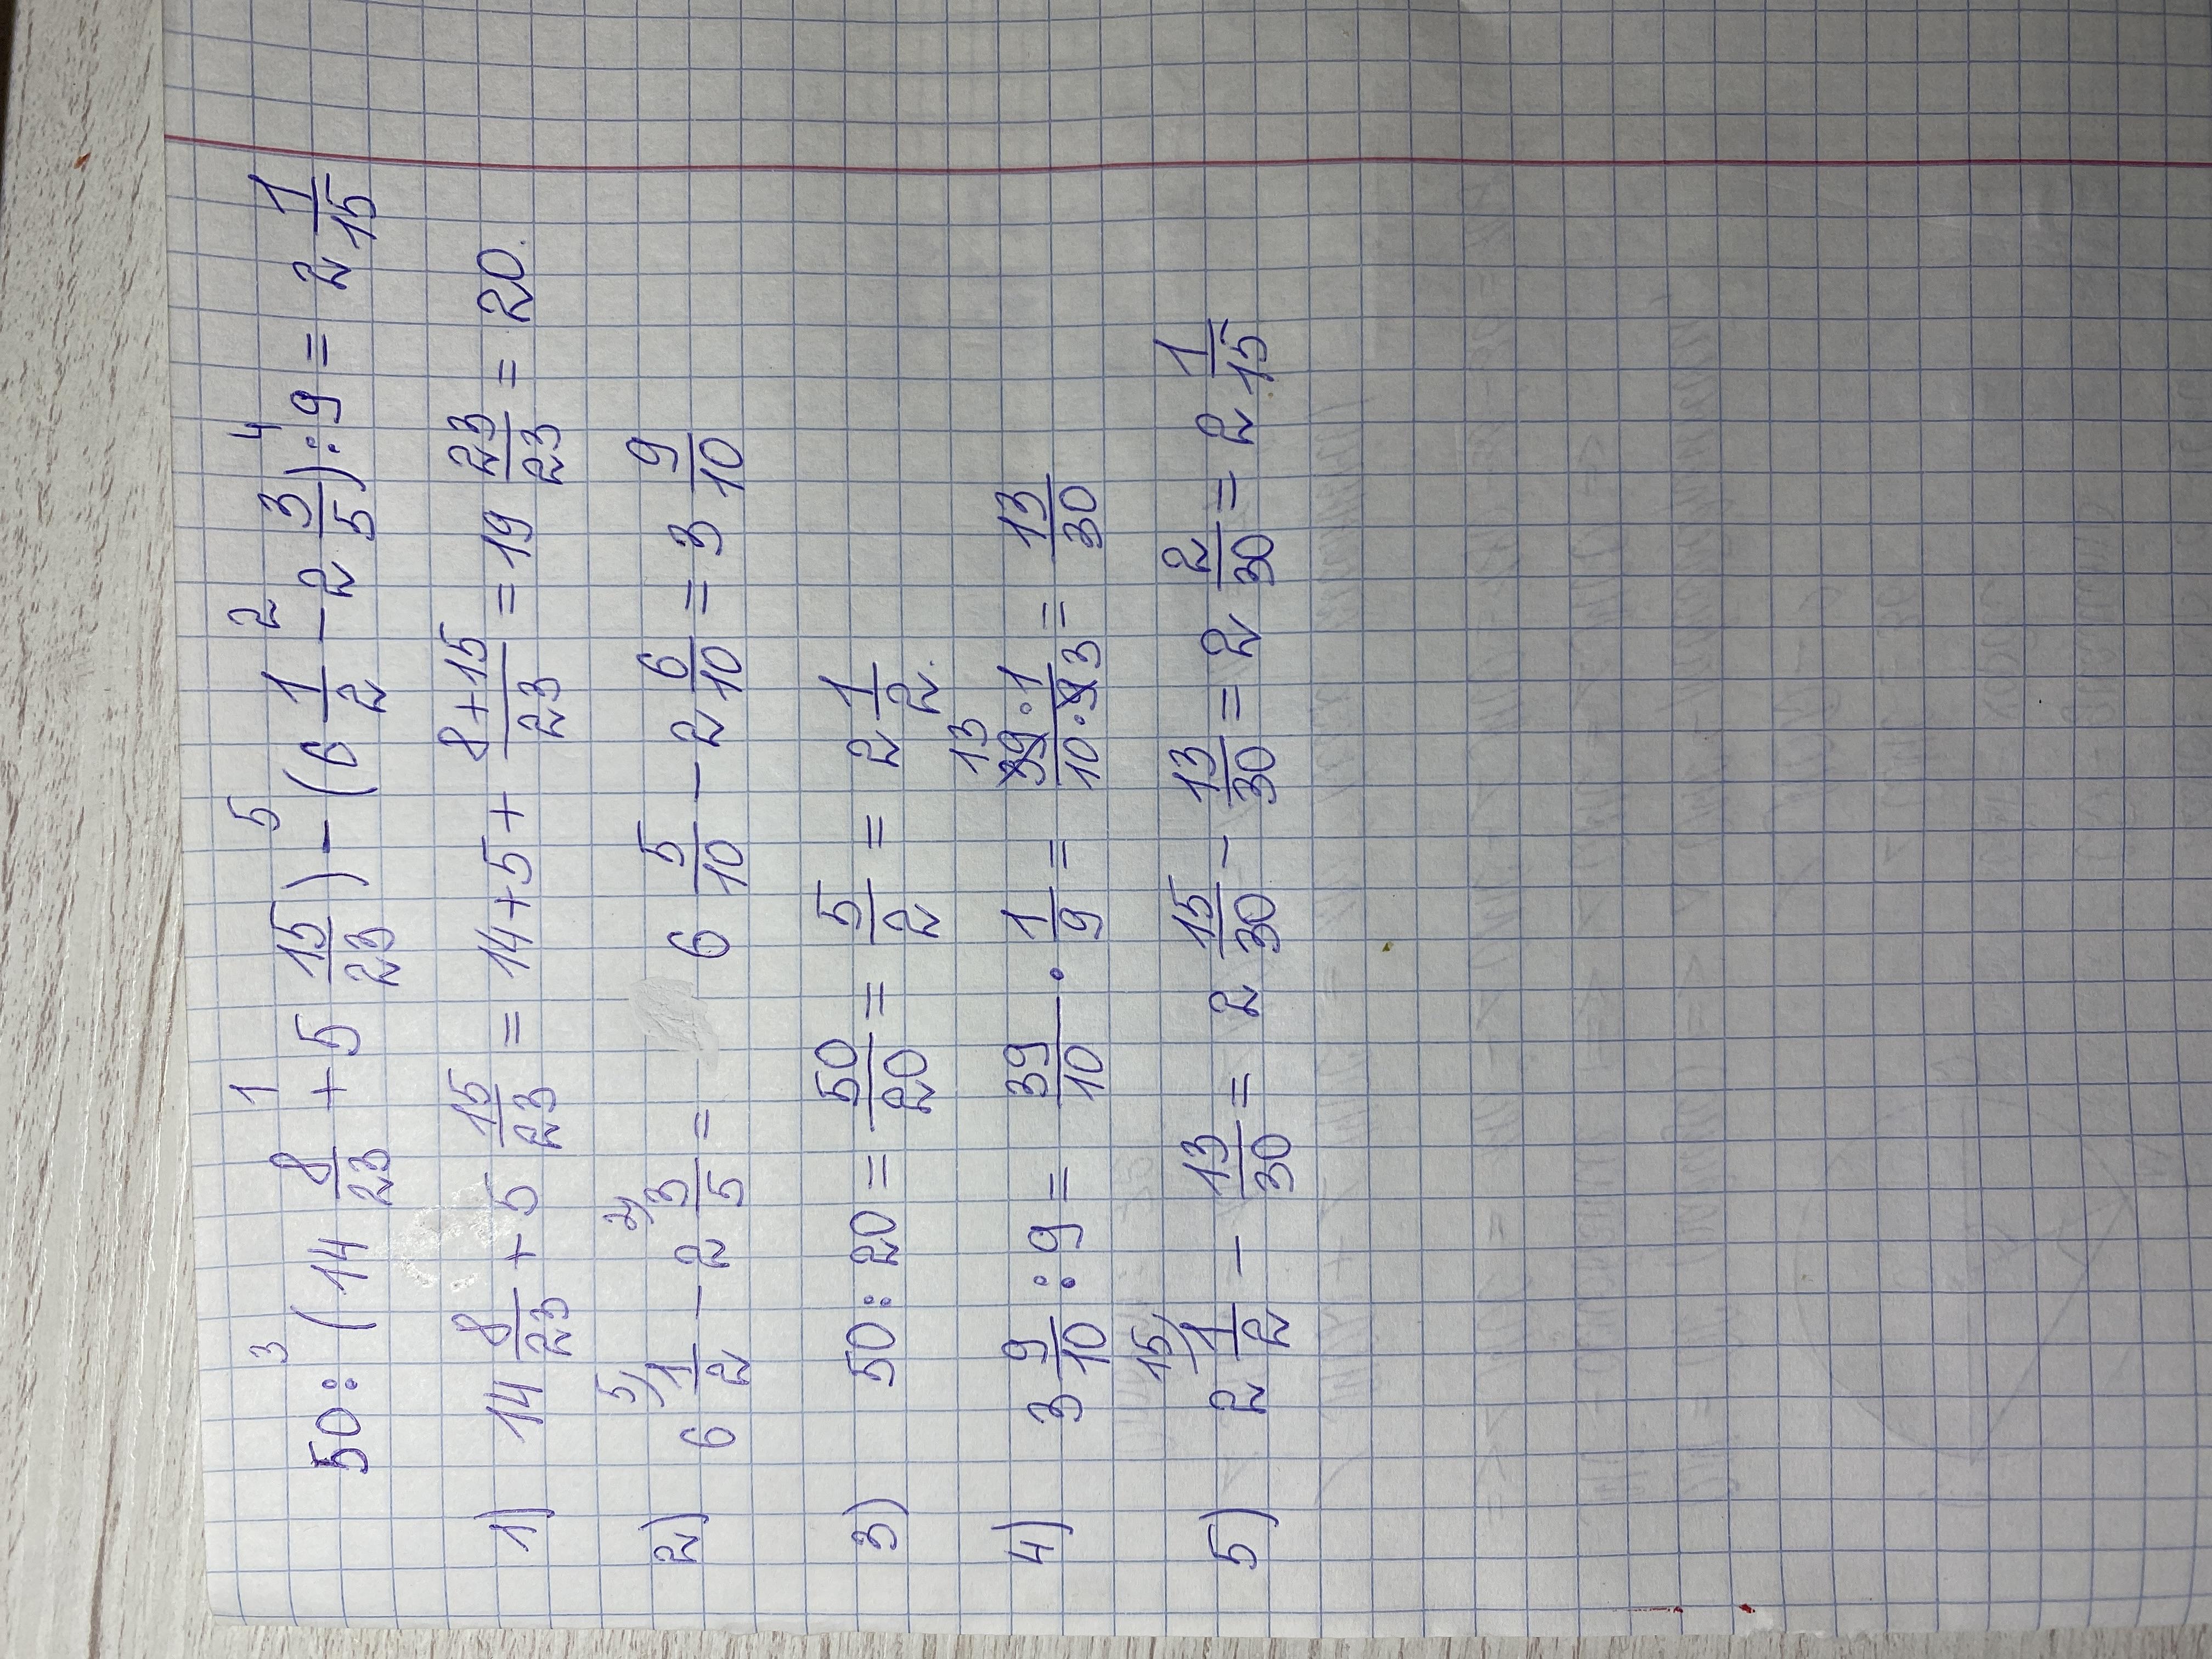 50 : (14 8/23 + 5 15/23) - (6 1/2 - 2 3/5) : 9 = 2 1/15
1) 14 8/23 + 5 15/23 = 14 + 5 + (8+15)/23 = 19 23/23 = 20.
2) 6 1/2 - 2 3/5 = 6 5/10 - 2 6/10 = 3 9/10
3) 50 : 20 = 50/20 = 5/2 = 2 1/2.
4) 3 9/10 : 9 = 39/10 · 1/9 = 39 · 1/10 · 9 = 13/30
5) 2 1/2 - 13/30 = 2 15/30 - 13/30 = 2 2/30 = 2 1/15